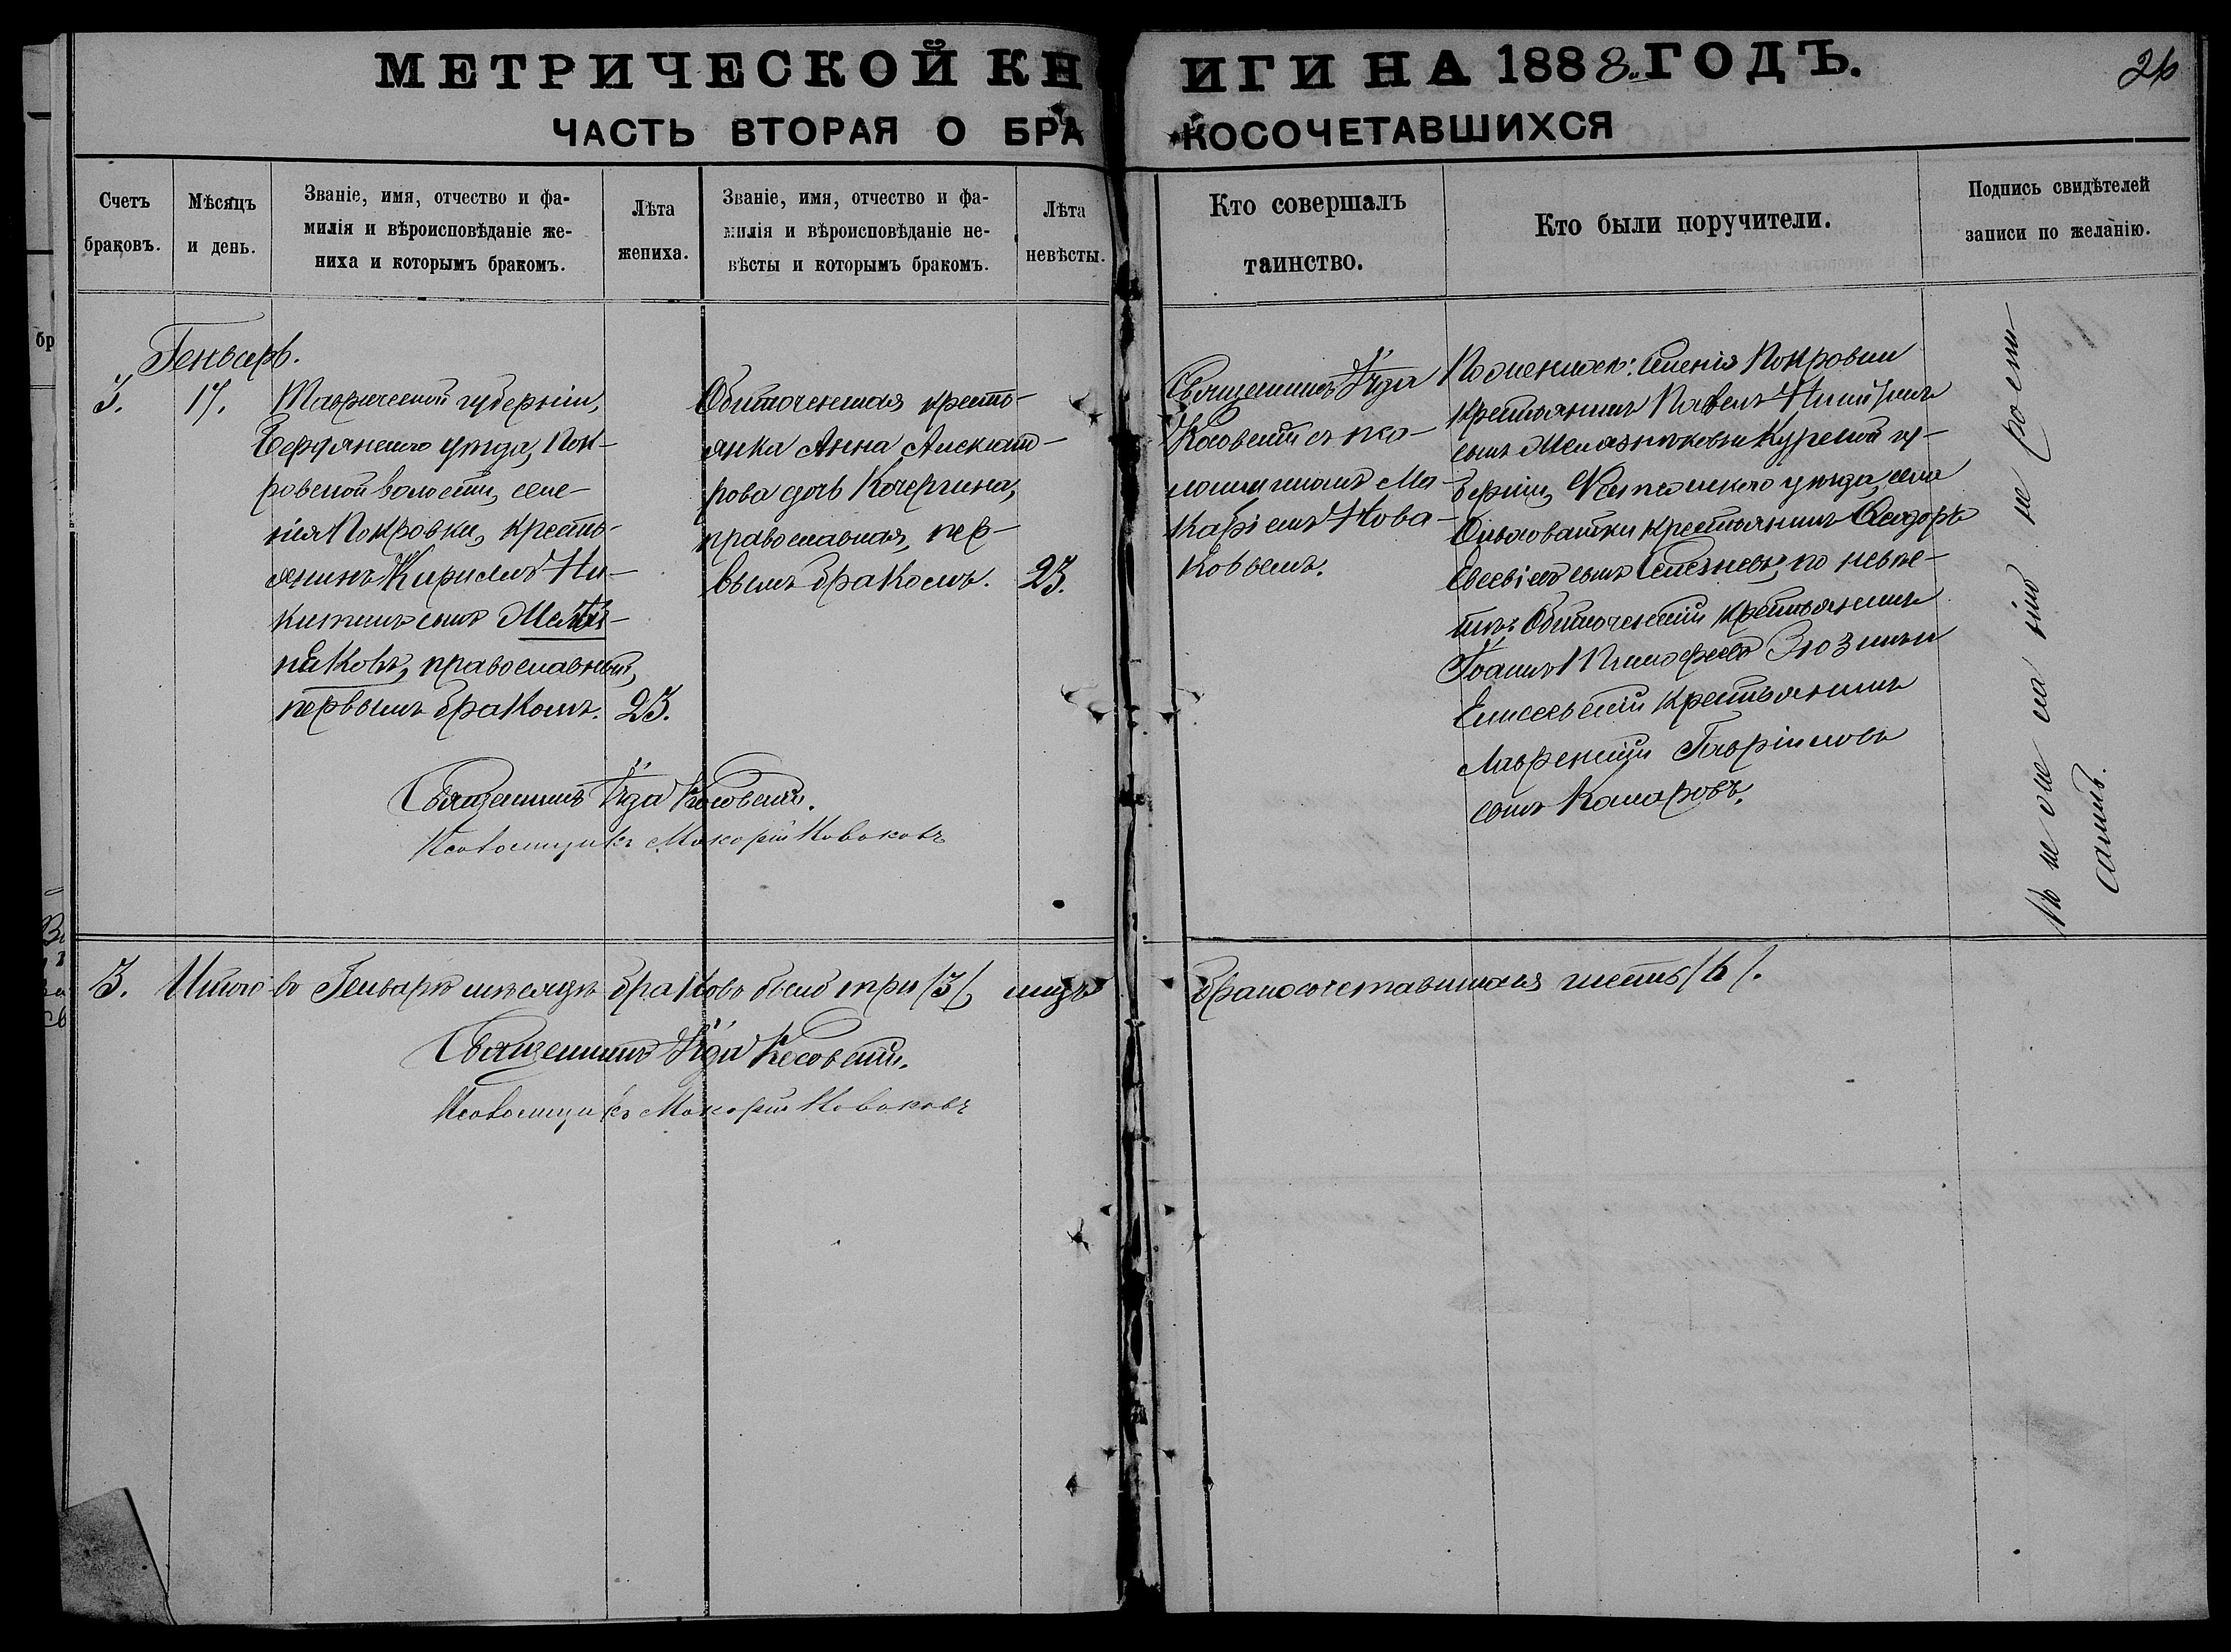 МЕТРИЧЕСКОЙ КНИГИ НА 1888 ГОДЪ.
26
ЧАСТЬ ВТОРАЯ О БРАКОСОЧЕТАВШИХСЯ
Счетъ браковъ.
Мѣсяцъ и день.
Званіе, имя, отчество и фа-
милія и вѣроисповѣданіе же-
ниха и которымъ бракомъ.
Лѣта
жениха.
Званіе, имя, отчество и фа-
милія и вѣроисповѣданіе не-
вѣсты и которымъ бракомъ.
Лѣта
невѣсты.
Кто совершалъ
таинство.
Кто были поручители.
Подпись свидѣтелей
записи по желанію.
Генварь.
3.
17.
Таврической губерніи,
Бердянскаго уѣзда, Пок-
ровской волости, селе-
нія Покровки, кресть-
янинъ Кирилъ Ни-
китинъ сынъ
православный,
первымъ бракомъ.
23.
Обиточенская кресть-
янка Анна Александ-
рова дочь Кочергина,
православная, пер-
вымъ бракомъ.
23.
Священникъ Іуда
Косовскій съ пса-
ломщикомъ Ма-
каріемъ Нова-
ковымъ.
По женихѣ: селенія Покровки
крестьянинъ Павелъ Никитинъ
сынъ Курской гу-
берніи, уѣзда, села
Ольховатки крестьянинъ
Евсѣевъ сынъ Селезневъ, по невѣс-
тѣ: Обиточенскій крестьянинъ
Іоаннъ Тимофеевъ и
Елисеевскій крестьянинъ
Лаврентій Гавріиловъ
сынъ Комаровъ.
Священникъ Іуда Косовскій.
Псаломщикъ Макарій Новаковъ
3.
Итого въ Генварѣ мѣсяцѣ браковъ было три /3/, лицъ бракосочетавшихся шесть /6/.
Священникъ Іуда Косовскій.
Псаломщикъ Макарій Новаковъ